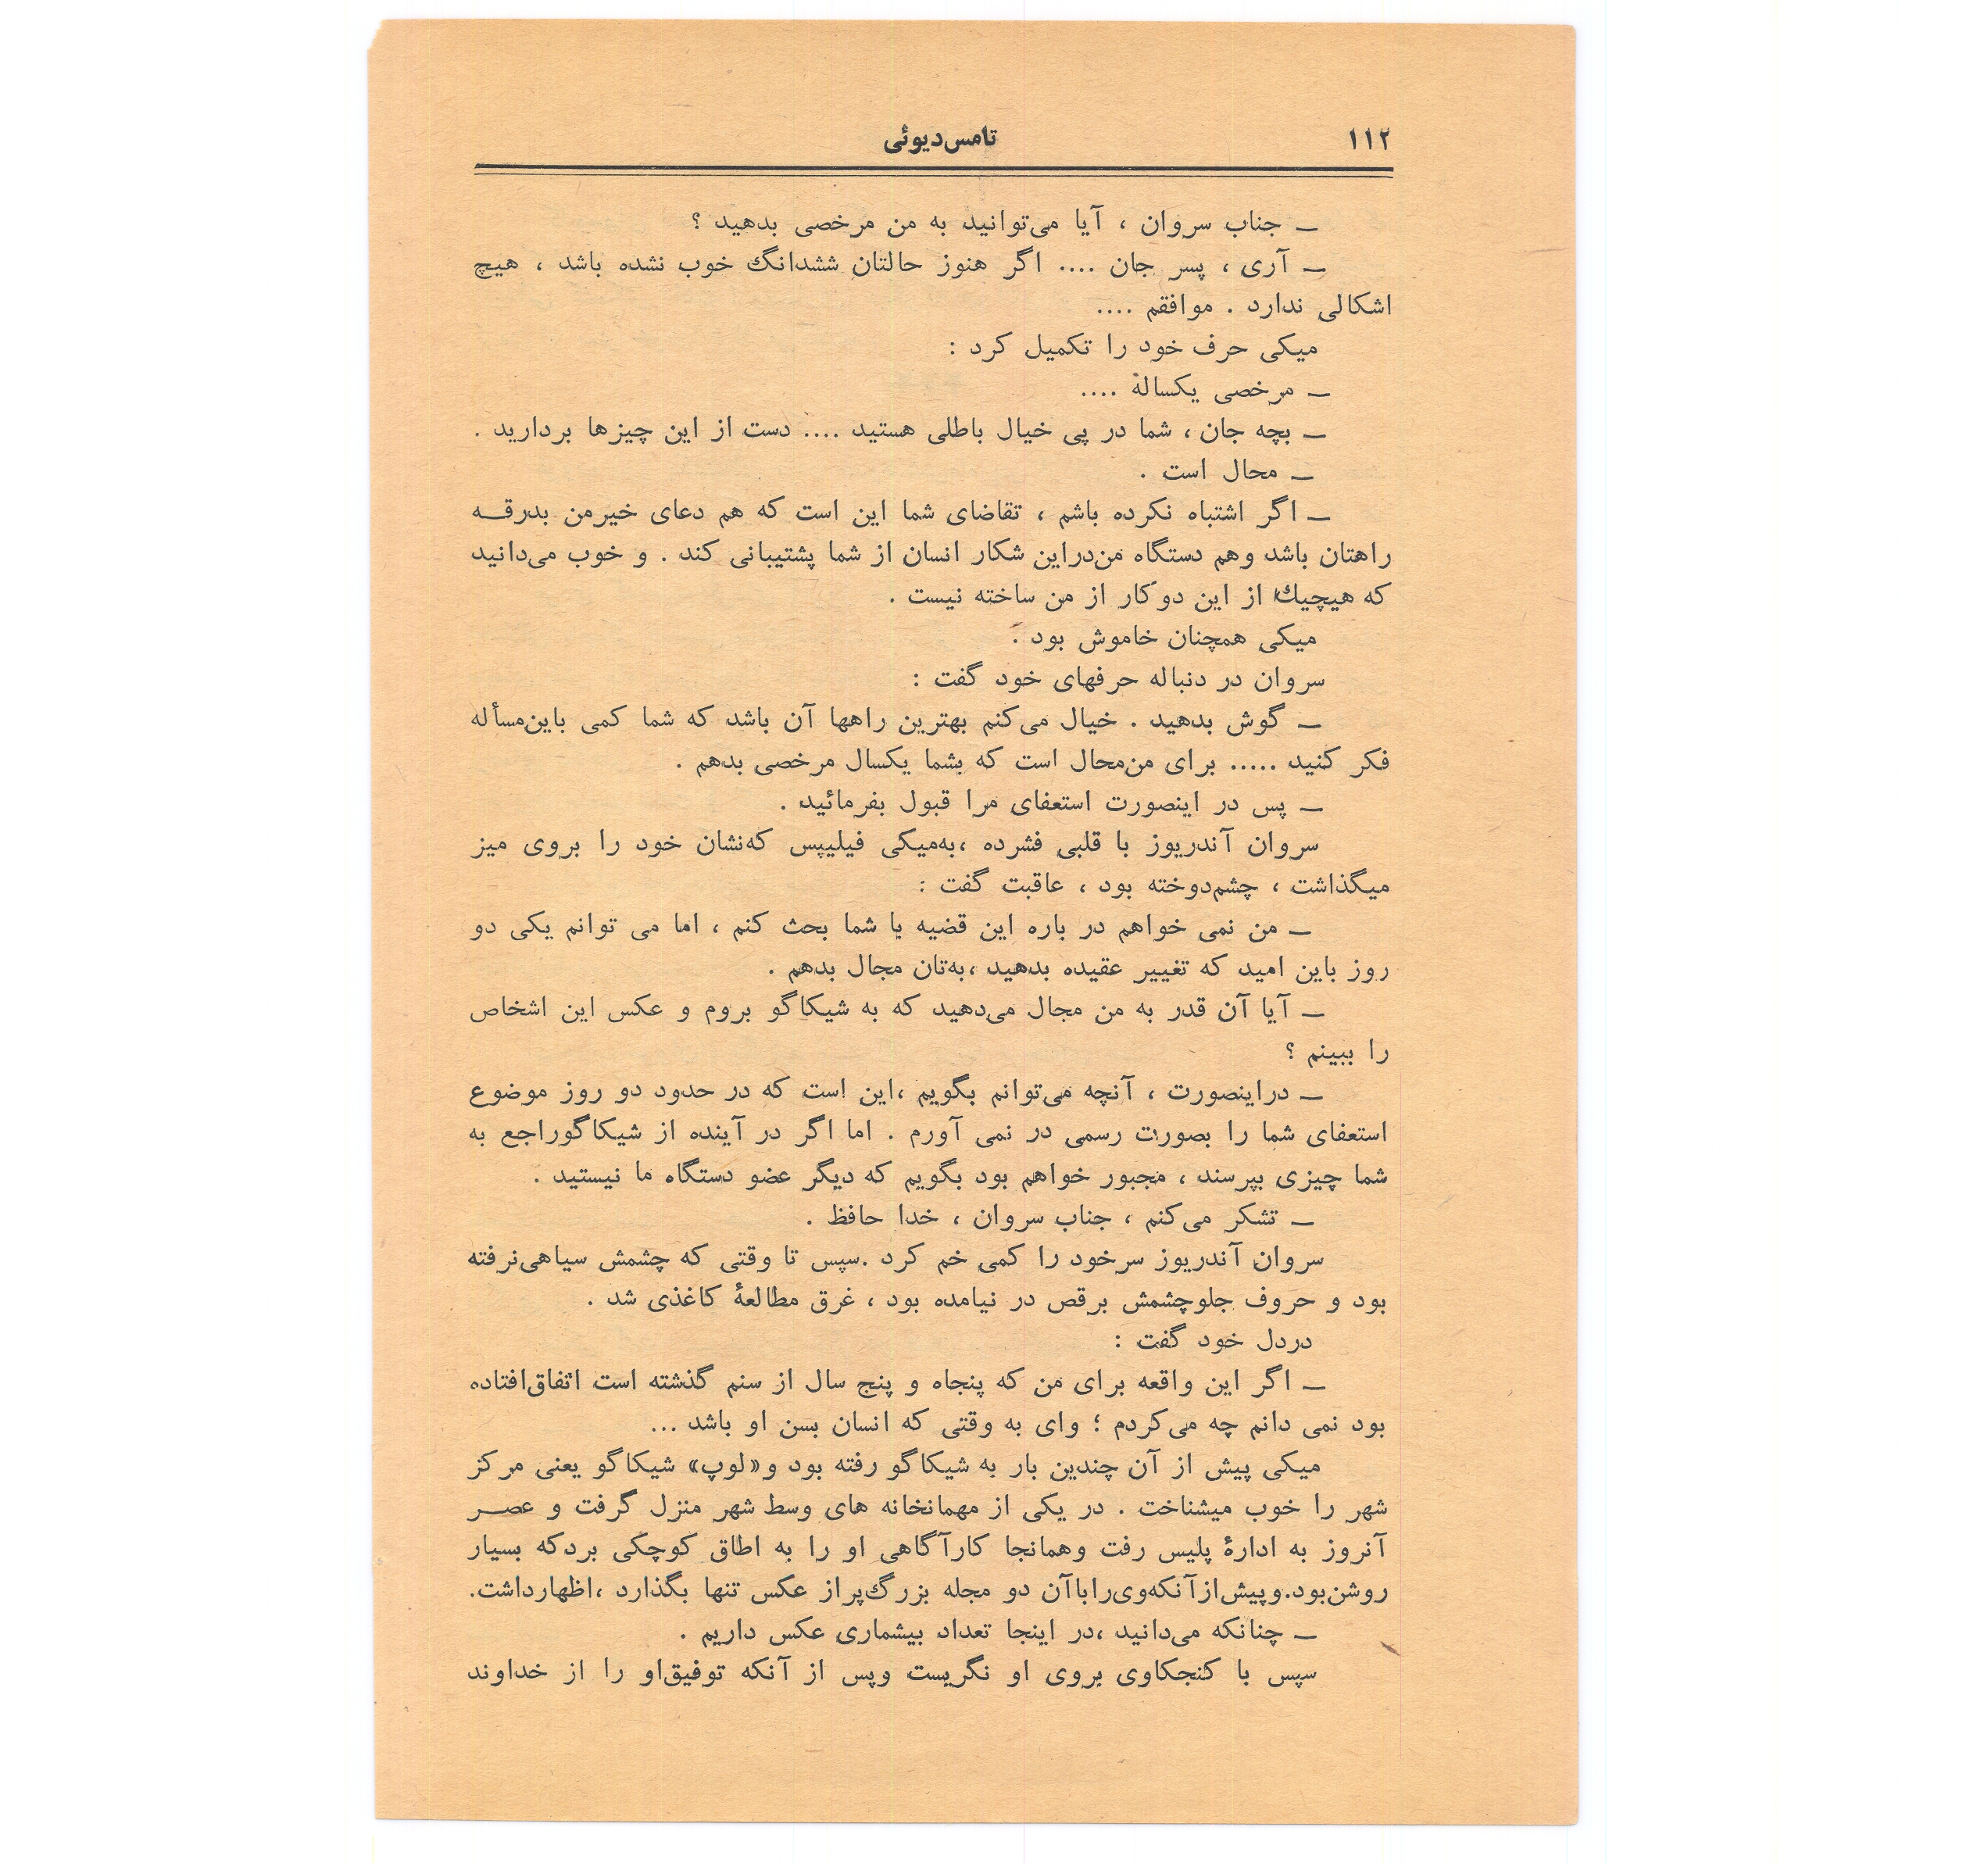 ۱۱۲
تامس‌دیوئی
ـ جناب سروان ، آیا می‌توانید به من مرخصی بدهید ؟
ـ آری ، پسر جان .... اگر هنوز حالتان ششدانگ خوب نشده باشد ، هیچ
اشکالی ندارد . موافقم ....
میکی حرف خود را تکمیل کرد :
ـ مرخصی یکسالهٔ ....
ـ بچه جان ، شما در پی خیال باطلی هستید .... دست از این چیزها بردارید .
ـ محال است .
ـ اگر اشتباه نکرده باشم ، تقاضای شما این است که هم دعای خیرمن بدرقـه
راهتان باشد وهم دستگاه من‌دراین شکار انسان از شما پشتیبانی کند . و خوب می‌دانید
که هیچیك از این دوکار از من ساخته نیست .
میکی همچنان خاموش بود .
سروان در دنباله حرفهای خود گفت :
ـ گوش بدهید . خیال می‌کنم بهترین راهها آن باشد که شما کمی باین‌مسأله
فکر کنید ..... برای من‌محال است که بشما یکسال مرخصی بدهم .
ـ پس در اینصورت استعفای مرا قبول بفرمائید .
سروان آندریوز با قلبی فشرده ،به‌میکی فیلیپس که‌نشان خود را بروی میز
میگذاشت ، چشم‌دوخته بود ، عاقبت گفت :
ـ من نمی خواهم در باره این قضیه با شما بحث کنم ، اما می توانم یکی دو
روز باین امید که تغییر عقیده بدهید ،به‌تان مجال بدهم .
ـ آیا آن قدر به من مجال می‌دهید که به شیکاگو بروم و عکس این اشخاص
را ببینم ؟
ـ دراینصورت ، آنچه می‌توانم بگویم ،این است که در حدود دو روز موضوع
استعفای شما را بصورت رسمی در نمی آورم . اما اگر در آینده از شیکاگوراجع به
شما چیزی بپرسند ، مجبور خواهم بود بگویم که دیگر عضو دستگاه ما نیستید .
ـ تشکر می‌کنم ، جناب سروان ، خدا حافظ .
سروان آندریوز سرخود را کمی خم کرد .سپس تا وقتی که چشمش سیاهی‌نرفته
بود و حروف جلوچشمش برقص در نیامده بود ، غرق مطالعهٔ کاغذی شد .
دردل خود گفت :
ـ اگر این واقعه برای من که پنجاه و پنج سال از سنم گذشته است اتفاق‌افتاده
بود نمی دانم چه می‌کردم ؛ وای به وقتی که انسان بسن او باشد ...
میکی پیش از آن چندین بار به شیکاگو رفته بود و«لوپ» شیکاگو یعنی مرکز
شهر را خوب میشناخت . در یکی از مهمانخانه های وسط شهر منزل گرفت و عصـر
آنروز به ادارهٔ پلیس رفت وهمانجا کارآگاهی او را به اطاق کوچکی بردکه بسیار
روشن‌بود.وپیش‌ازآنکه‌وی‌راباآن دو مجله بزرگ‌پراز عکس تنها بگذارد ،اظهارداشت.
ـ چنانکه می‌دانید ،در اینجا تعداد بیشماری عکس داریم .
سپس با کنجکاوی بروی او نگریست وپس از آنکه توفیق‌او را از خداوند